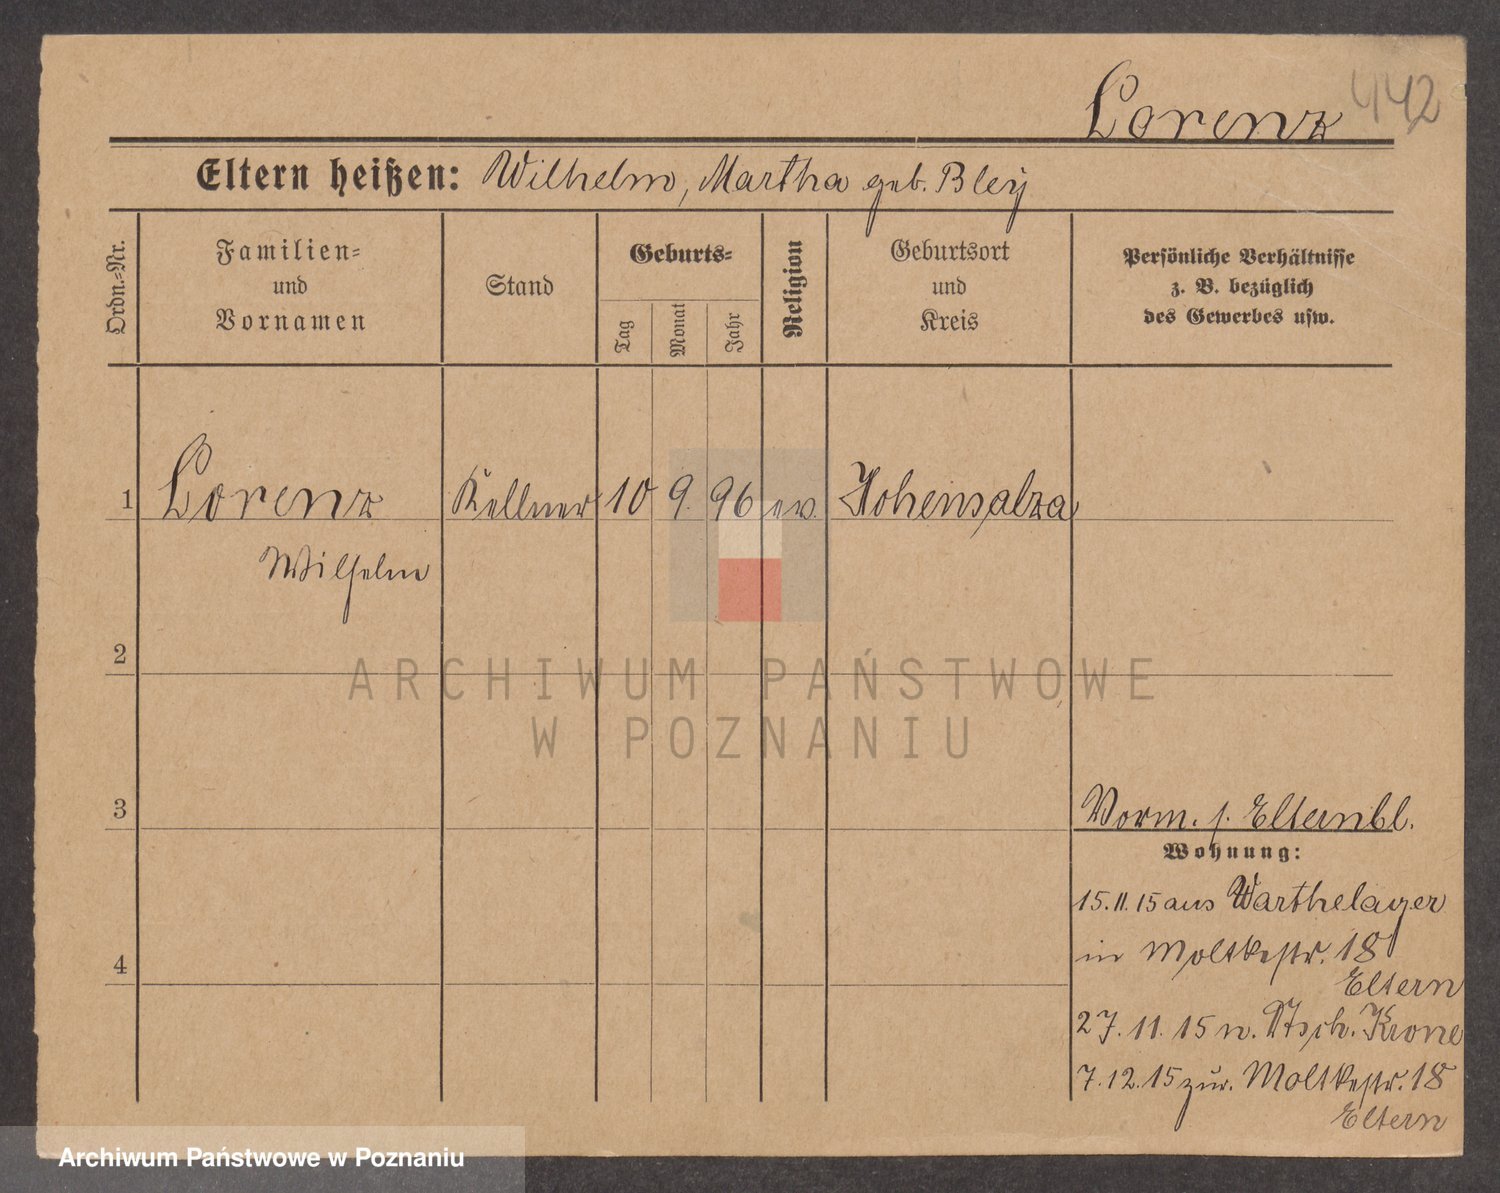 Lorenz 442
Eltern heißen: Wilhelm, Martha geb. Bley
Ordn.=Nr.
Familien=
und
Vornamen
Stand
Geburts=
Tag
Monat
Jahr
Religion
Geburtsort
und
Kreis
Persönliche Verhältnisse
z. B. bezüglich
des Gewerbes usw.
1 Lorenz Kellner 10 9. 96 ev. Hohensalza
Wilhelm
2
ARCHIWUM PAŃSTWOWE
W POZNANIU
3
Vorm. s. Elternbl.
Wohnung:
15.11.15 aus Warthelager
in Moltkestr. 18
4
Eltern
27.11.15 n. Dtsch. Krone
7.12.15 zur. Moltkestr. 18
Eltern
Archiwum Państwowe w Poznaniu